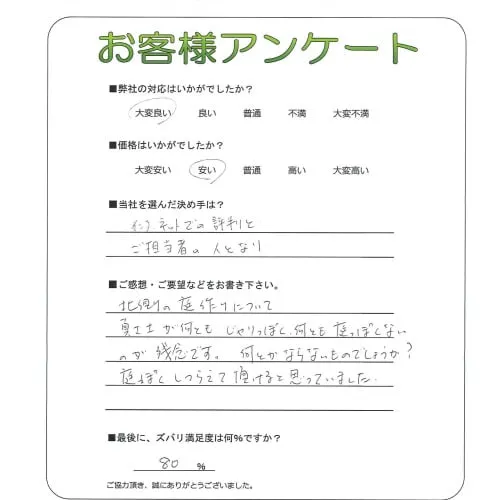 お客様アンケート
■弊社の対応はいかがでしたか？
大変良い 良い 普通 不満 大変不満
■価格はいかがでしたか？
大変安い 安い 普通 高い 大変高い
■当社を選んだ決め手は？
ネットでの評判と
ご担当者の人となり
■ご感想・ご要望などをお書き下さい。
北側の庭作りについて
真土が何とも じゃりっぽく、何とも庭っぽくない
のが残念です。 何とかならないものでしょうか？
庭ぽくしつらえて頂けると思っていました。
■最後に、ズバリ満足度は何%ですか？
80 %
ご協力頂き、誠にありがとうございました。